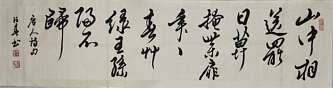 山中相
送罷
日暮
掩柴扉
年年
春草
綠王孫
歸不
歸
唐人詩句